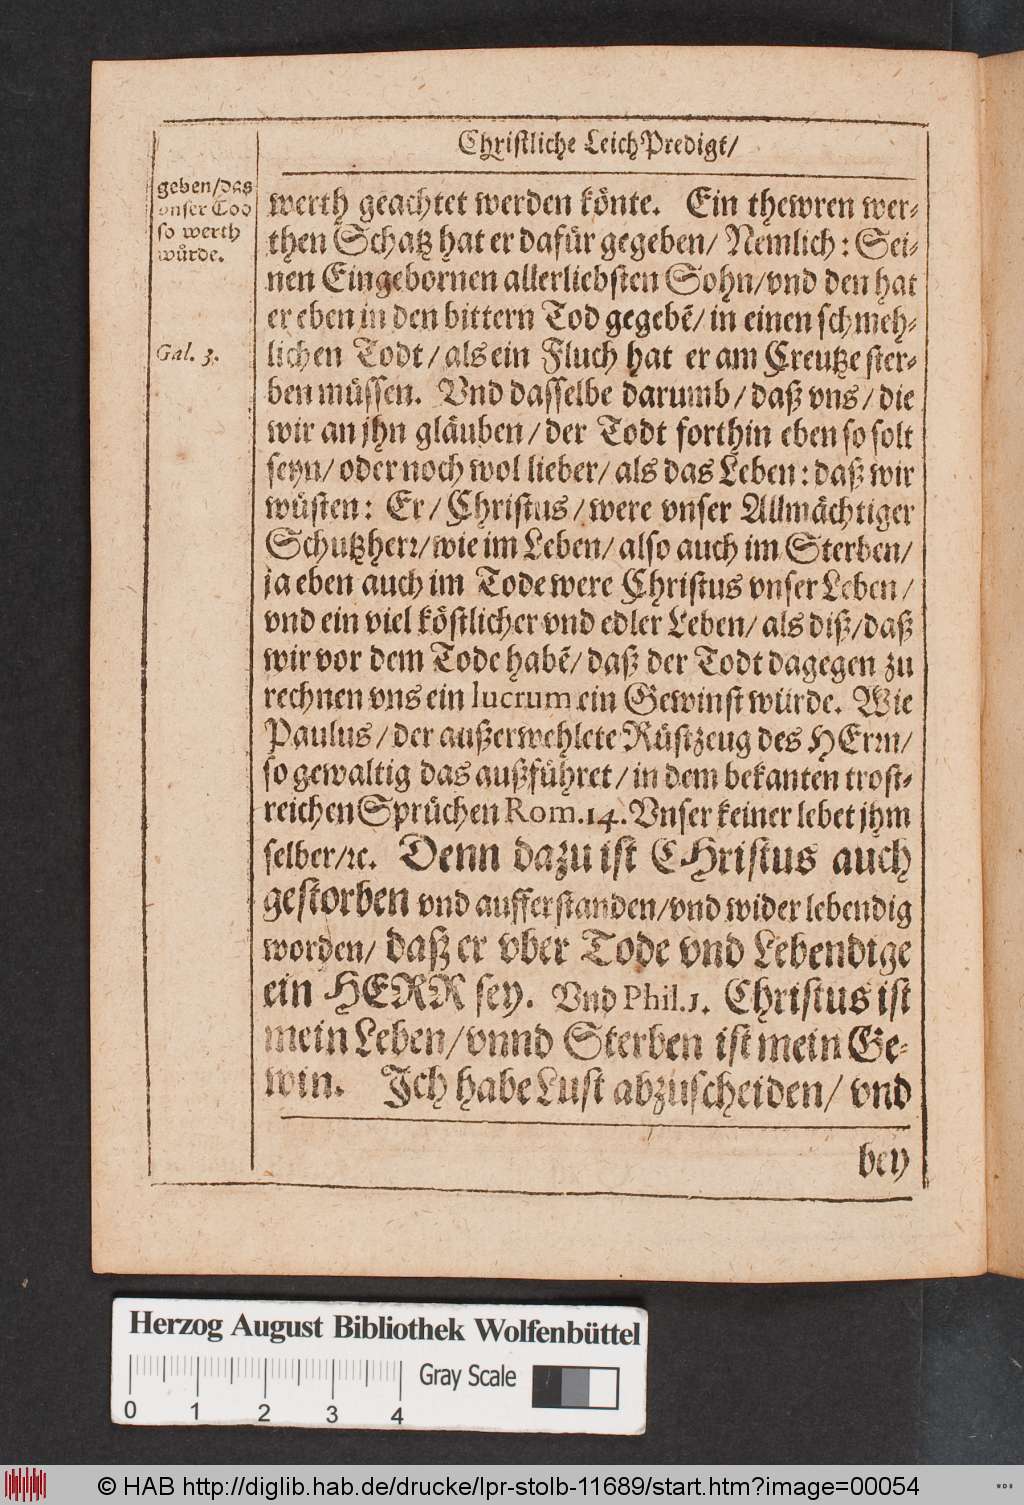 Christliche LeichPredigt/
geben/das
vnser Tod
so werth
würde.
Gal. 3.
werth geachtet werden könte. Ein thewren wer-
then Schatz hat er dafür gegeben/ Nemlich: Sei-
nen Eingebornen allerliebsten Sohn/vnd den hat
er eben in den bittern Tod gegebẽ/ in einen schmeh-
lichen Todt/ als ein Fluch hat er am Creutze ster-
ben müssen. Vnd dasselbe darumb/ daß vns/ die
wir an jhn gläuben/ der Todt forthin eben so solt
seyn/ oder noch wol lieber/ als das Leben: daß wir
wüsten: Er/ Christus/ were vnser Allmächtiger
Schutzherr/ wie im Leben/ also auch im Sterben/
ja eben auch im Tode were Christus vnser Leben/
vnd ein viel köstlicher vnd edler Leben/ als diß/daß
wir vor dem Tode habẽ/ daß der Todt dagegen zu
rechnen vns ein lucrum ein Gewinst würde. Wie
Paulus/ der außerwehlete Rüstzeug des HErrn/
so gewaltig das außführet/ in dem bekanten trost-
reichen Sprüchen Rom. 14. Vnser keiner lebet jhm
selber/ꝛc. Denn dazu ist CHristus auch
gestorben vnd aufferstanden/vnd wider lebendig
worden/ daß er vber Tode vnd Lebendige
ein HERR sey. Vnd Phil. 1. Christus ist
mein Leben/ vnnd Sterben ist mein Ge-
win. Ich habe Lust abzuscheiden/ vnd
bey
Herzog August Bibliothek Wolfenbüttel
Gray Scale
0 1 2 3 4
© HAB http://diglib.hab.de/drucke/lpr-stolb-11689/start.htm?image=00054